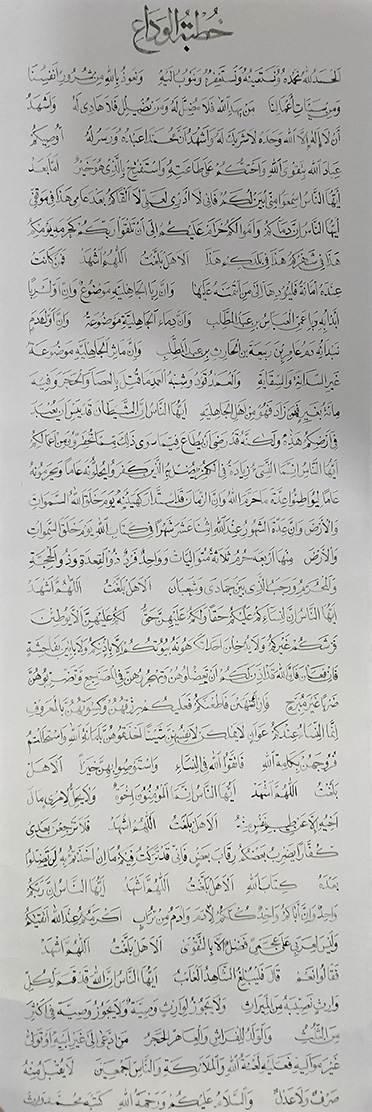 خطبة الوداع
الحمد لله نحمده ونستعينه ونستغفره ونتوب اليه ونعوذ بالله من شرور انفسنا
ومن سيئات اعمالنا من يهد الله فلا مضل له ومن يضلل فلا هادى له واشهد
أن لا إله إلا الله وحده لا شريك له وأشهد أن محمدا عبده ورسوله أوصيكم
عباد الله بتقوى الله وأحثكم على طاعته وأستفتح بالذى هو خير اما بعد
أيها الناس اسمعوا منى أبين لكم فانى لا أدرى لعلى لا ألقاكم بعد عامى هذا فى موقفى
أيها الناس ان دماءكم وأموالكم حرام عليكم إلى أن تلقوا ربكم كحرمة يومكم
هذا فى شهركم هذا فى بلدكم هذا ألا هل بلغت اللهم اشهد فمن كانت
عنده أمانة فليؤدها إلى من ائتمنه عليها وان ربا الجاهلية موضوع وان أول ربا
أبدأ به ربا عمى العباس بن عبد المطلب وان دماء الجاهلية موضوعة وان أول دم
نبدأ به دم عامر بن ربيعة بن الحارث بن عبد المطلب وان مآثر الجاهلية موضوعة
غير السدانة والسقاية والعمد قود وشبه العمد ما قتل بالعصا والحجر وفيه
مائة بعير فمن زاد فهو من أهل الجاهلية أيها الناس ان الشيطان قد يئس أن يعبد
فى أرضكم هذه ولكنه قد رضى أن يطاع فيما سوى ذلك مما تحقرون من أعمالكم
أيها الناس انما النسىء زيادة فى الكفر يضل به الذين كفروا يحلونه عاما ويحرمونه
عاما ليواطئوا عدة ما حرم الله وان الزمان قد استدار كهيئته يوم خلق الله السموات
والأرض وان عدة الشهور عند الله اثنا عشر شهرا فى كتاب الله يوم خلق السموات
والأرض منها أربعة حرم ثلاثة متواليات وواحد فرد ذو القعدة وذو الحجة
والمحرم ورجب الذى بين جمادى وشعبان ألا هل بلغت اللهم اشهد
أيها الناس ان لنسائكم عليكم حقا ولكم عليهن حق لكم عليهن ألا يوطئن
فرشكم غيركم ولا يدخلن أحدا تكرهونه بيوتكم إلا بإذنكم ولا يأتين بفاحشة
فان فعلن فان الله قد أذن لكم أن تعضلوهن وتهجروهن فى المضاجع وتضربوهن
ضربا غير مبرح فان انتهين وأطعنكم فعليكم رزقهن وكسوتهن بالمعروف
إنما النساء عندكم عوان لا يملكن لأنفسهن شيئا أخذتموهن بأمانة الله واستحللتم
فروجهن بكلمة الله فاتقوا الله فى النساء واستوصوا بهن خيرا ألا هل
بلغت اللهم اشهد أيها الناس إنما المؤمنون إخوة ولا يحل لامرئ مال
أخيه إلا عن طيب نفس منه ألا هل بلغت اللهم اشهد فلا ترجعن بعدى
كفارا يضرب بعضكم رقاب بعض فانى قد تركت فيكم ما إن أخذتم به لن تضلوا
بعده كتاب الله ألا هل بلغت اللهم اشهد أيها الناس ان ربكم
واحد وان أباكم واحد كلكم لآدم وآدم من تراب أكرمكم عند الله أتقيكم
وليس لعربى على عجمى فضل إلا بالتقوى ألا هل بلغت اللهم اشهد
فقالوا نعم قال فليبلغ الشاهد الغائب أيها الناس ان الله قد قسم لكل
وارث نصيبه من الميراث ولا يجوز لوارث وصية ولا يجوز وصية فى أكثر
من الثلث والولد للفراش وللعاهر الحجر من ادعى إلى غير أبيه أو تولى
غير مواليه فعليه لعنة الله والملائكة والناس أجمعين لا يقبل منه
صرف ولا عدل والسلام عليكم ورحمة الله كتبه محمد